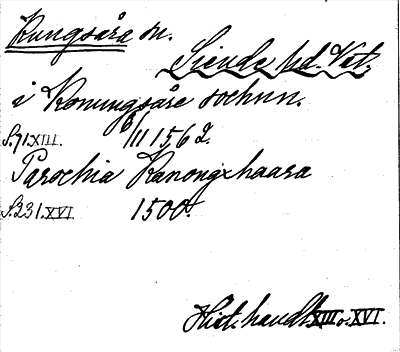 Kungsåra sn.
Siende hd. Vstm.
i Konungsåre sochnn.
S. 71. XIII. 6/III 1562.
Parochia Kanongxhaara
S. 231. XVI 1500t.
Hist. handl. XIII o. XVI.